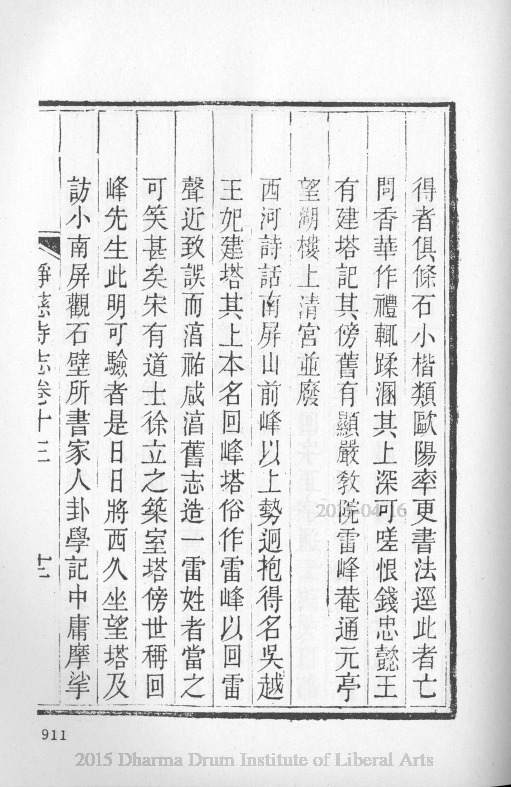 得者俱條石小楷類歐陽率更書法遥此者亡
問香華作禮輒蹂溷其上深可嗟恨錢忠懿王
有建塔記其傍舊有顯嚴教院雷峰菴通元亭
望湖樓上清宮並廢
西河詩話南屏山前峰以上勢迥抱得名吳越
王妃建塔其上本名回峰塔俗作雷峰以回雷
聲近致誤而淳祐咸淳舊志造一雷姓者當之
可笑甚矣宋有道士徐立之築室塔傍世稱回
峰先生此明可驗者是日日將西久坐望塔及
訪小南屏觀石壁所書家人卦學記中庸摩挲
淨慈寺志卷十三 十二
911
2015-04-16
2015 Dharma Drum Institute of Liberal Arts